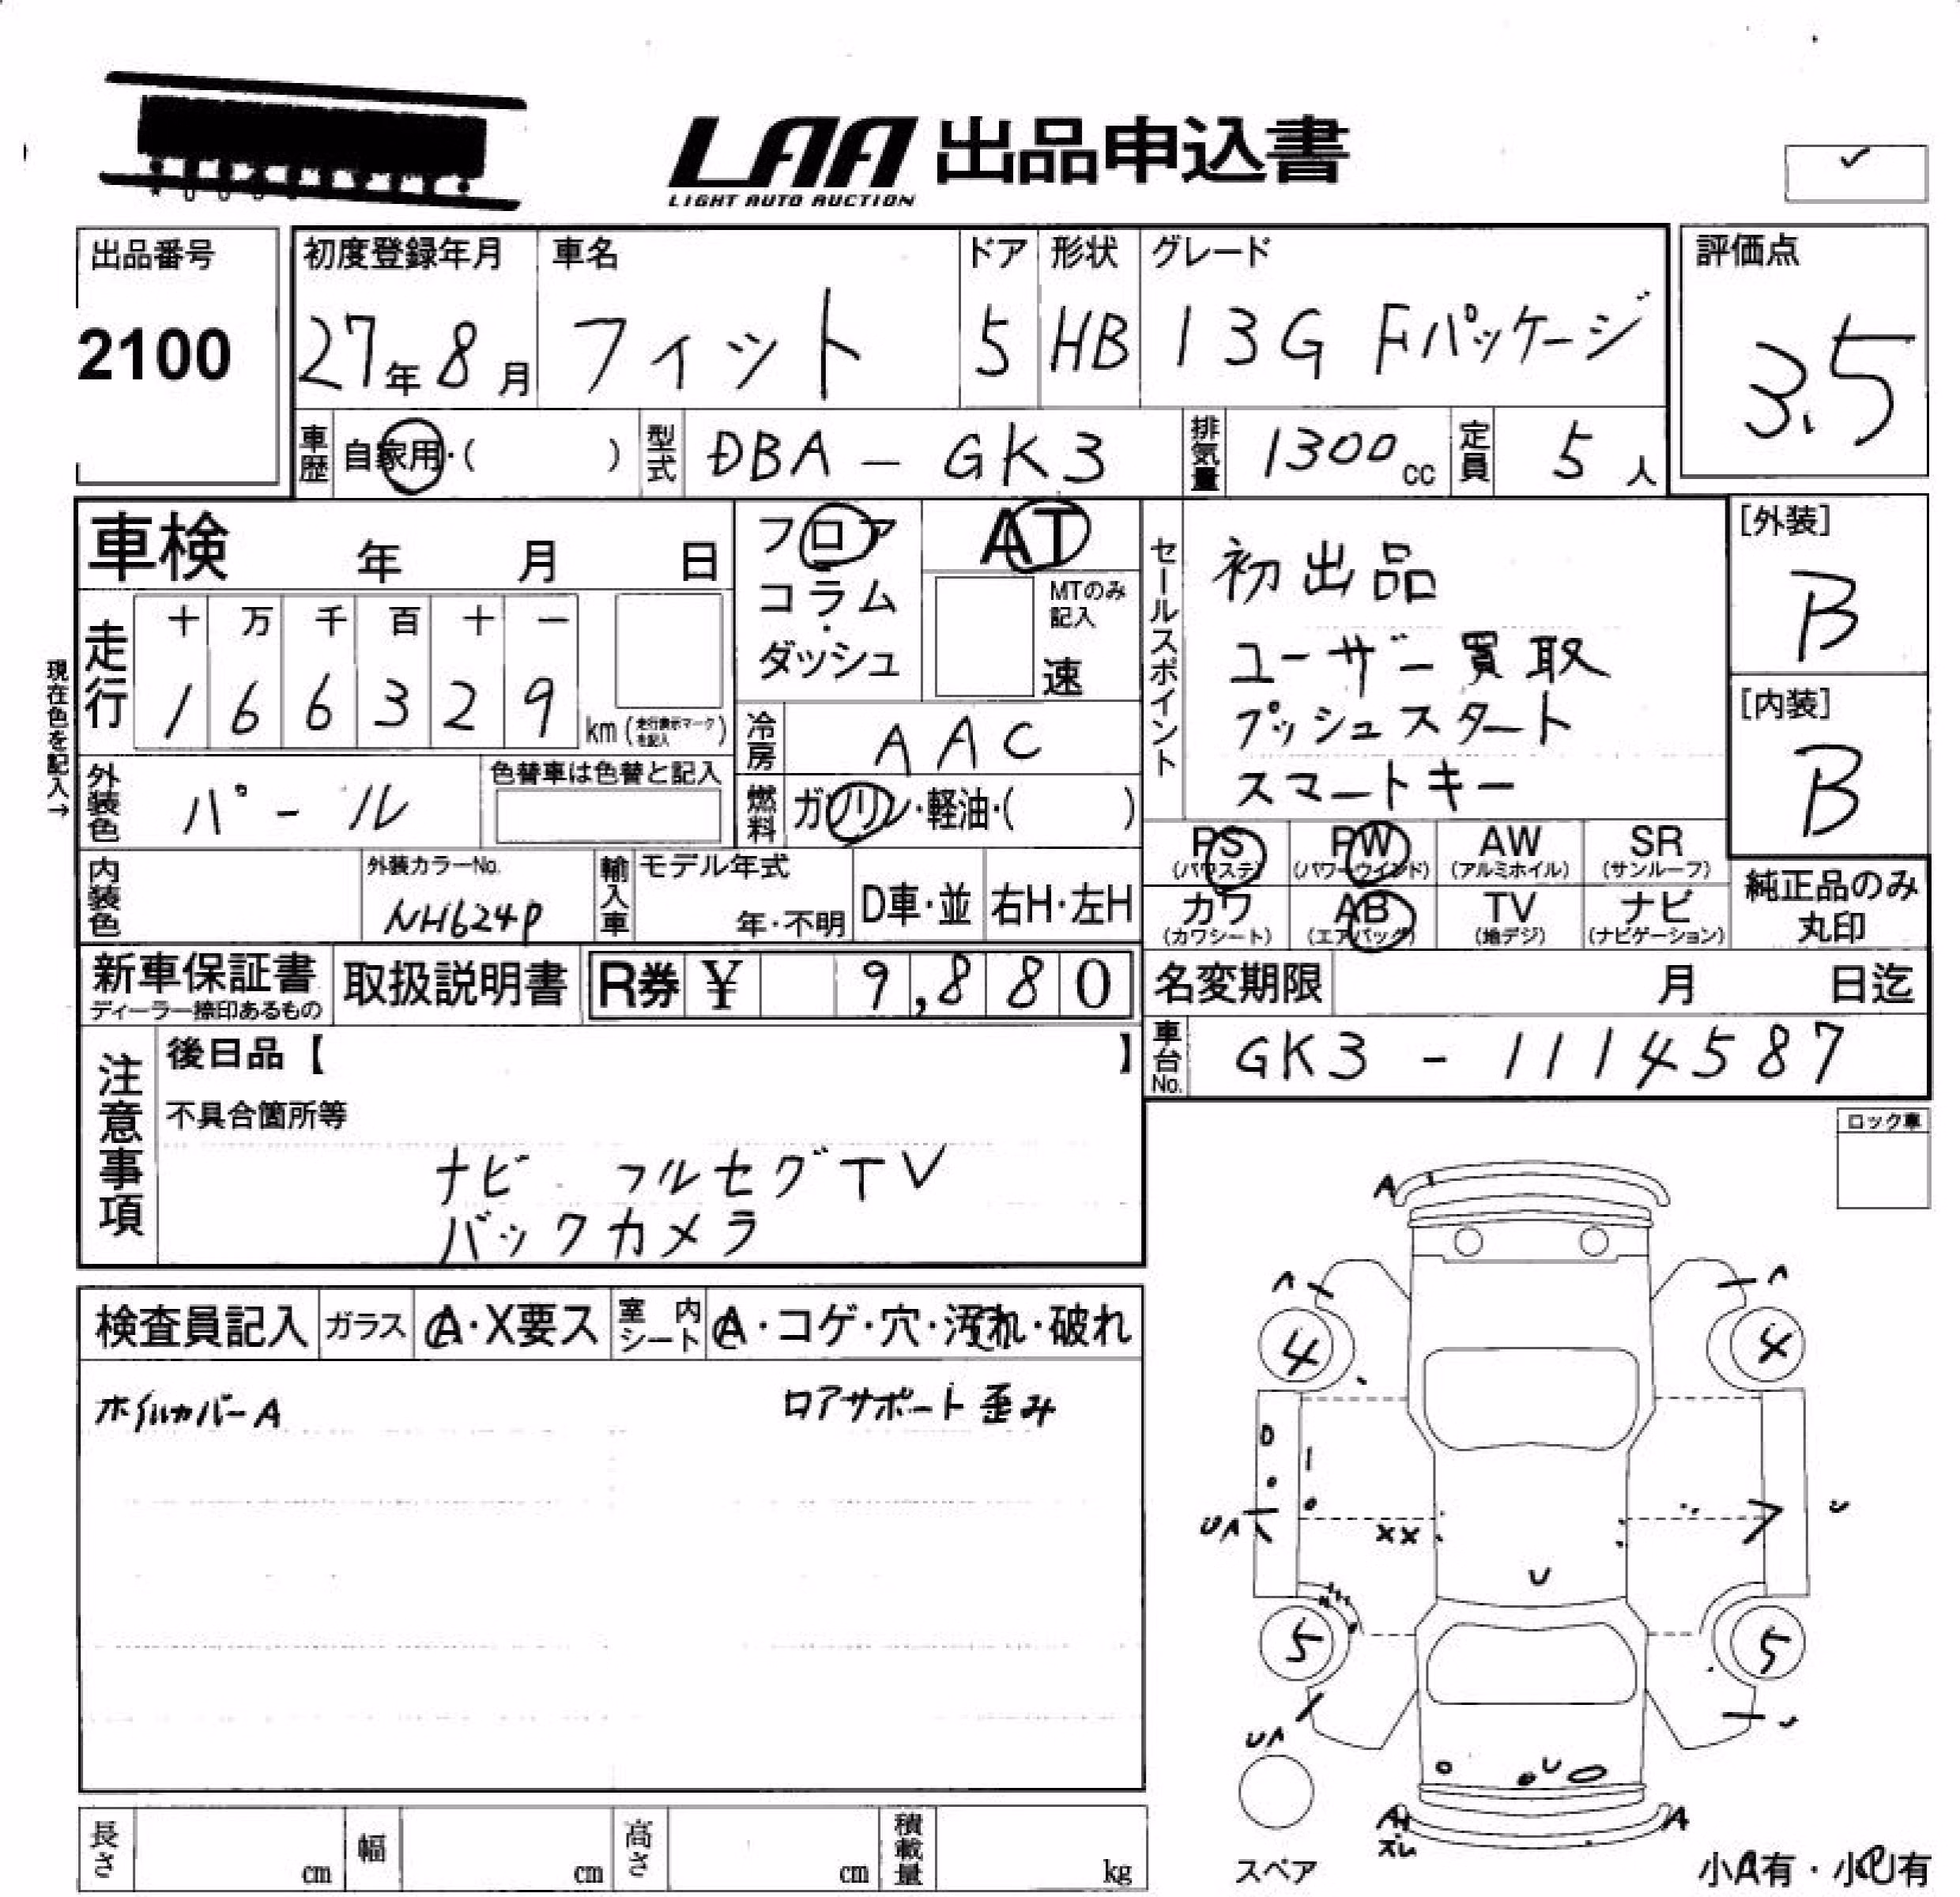 LAA 出品申込書
LIGHT AUTO AUCTION
✓
出品番号
2100
初度登録年月
27年8月
車名
フィット
ドア
5
形状
HB
グレード
13G Fパッケージ
評価点
3.5
車歴
自家用・( )
型式
DBA - GK3
排気量
1300cc
定員
5人
車検 年 月 日
フロア
・
コラム
・
ダッシュ
AT
MTのみ
記入
速
セールスポイント
初出品
ユーザー買取
プッシュスタート
スマートキー
[外装]
B
[内装]
B
現在色を記入→
走行
十 万 千 百 十 一
1 6 6 3 2 9
km (走行表示マークを記入)
冷房
AAC
外装色
パール
色替車は色替と記入
燃料
ガソリン・軽油・( )
内装色
外装カラーNo.
NH624P
輸入車
モデル年式
年・不明
D車・並
右H・左H
PS
(パワステ)
PW
(パワーウインド)
AW
(アルミホイル)
SR
(サンルーフ)
カワ
(カワシート)
AB
(エアバッグ)
TV
(地デジ)
ナビ
(ナビゲーション)
純正品のみ
丸印
新車保証書
ディーラー捺印あるもの
取扱説明書
R券 ¥ 9,880
名変期限 月 日迄
車台No.
GK3 - 1114587
注意事項
後日品【 】
不具合箇所等
ナビ フルセグTV
バックカメラ
ロック車
検査員記入
ガラス
A・X要ス
室内
シート
A・コゲ・穴・汚れ・破れ
ホイルカバーA
ロアサポート歪み
A
A
A
4
4
UA
XX
U
U
5
5
UA
U
U
A
ズレ
A
スペア
小A有・小U有
長さ
cm
幅
cm
高さ
cm
積載量
kg